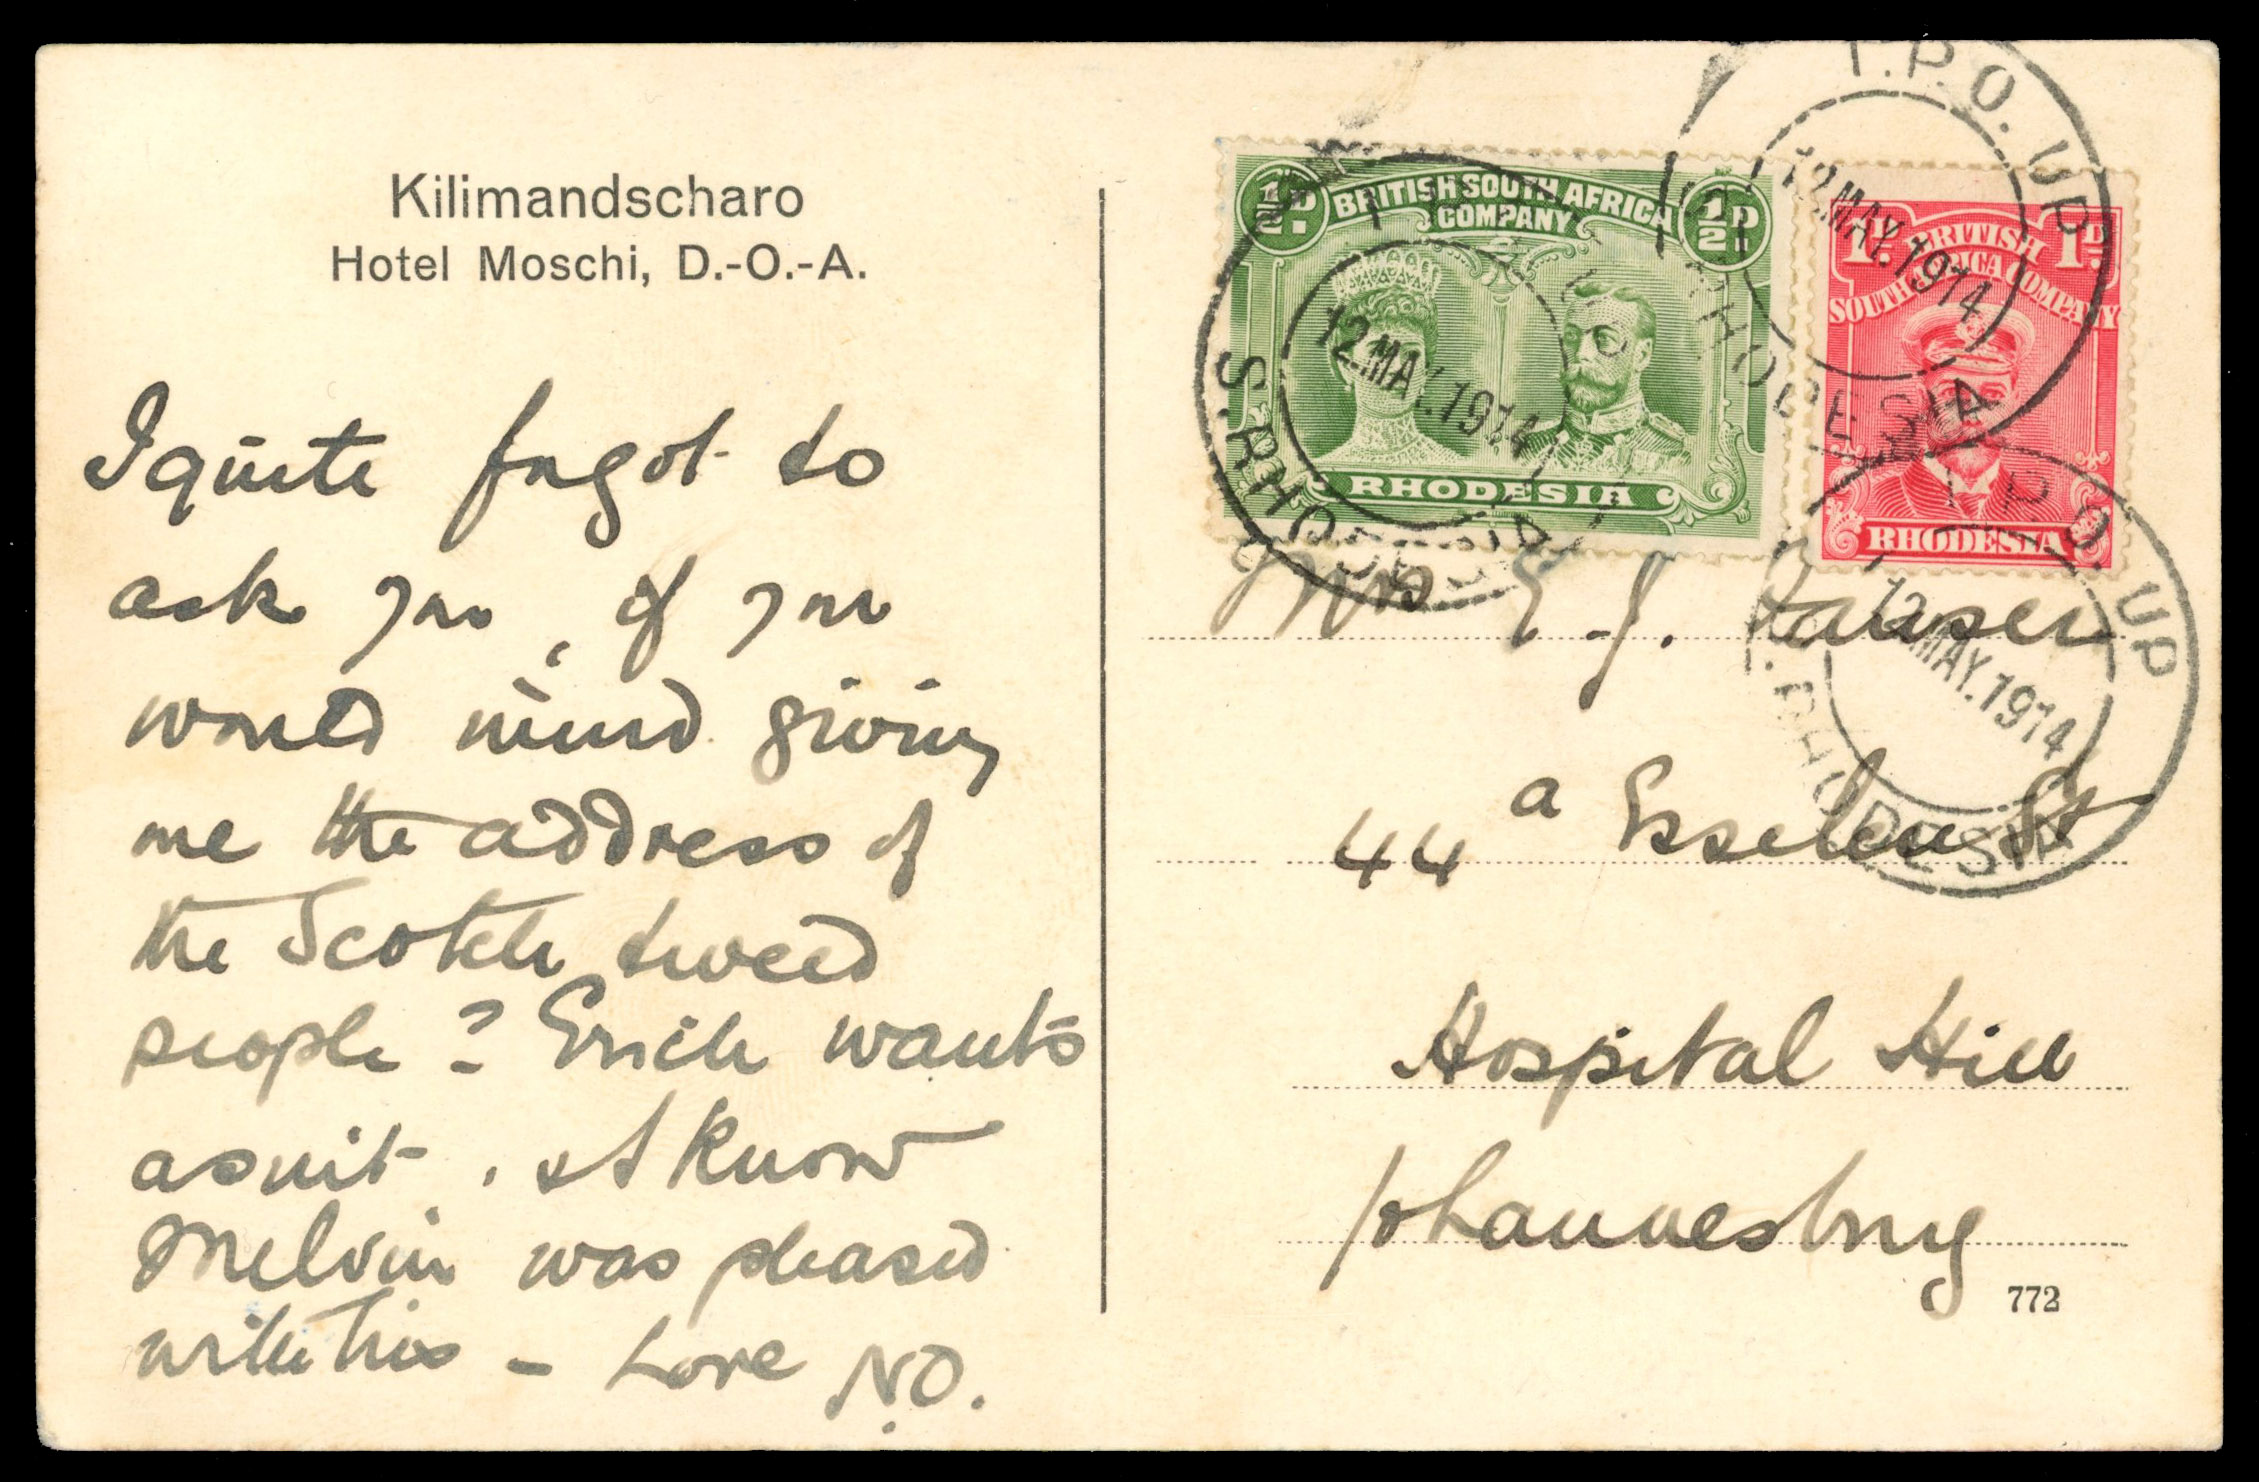 Kilimandscharo
Hotel Moschi, D.-O.-A.
I quite forgot to
ask you, if you
would mind giving
me the address of
the Scotch tweed
people? Erich wants
a suit. & I know
Melvin was pleased
with his - Love N.O.
½D.
BRITISH SOUTH AFRICA
COMPANY
½D.
RHODESIA
1D.
BRITISH
SOUTH AFRICA COMPANY
1D.
RHODESIA
T.P.O. UP
12 MAY. 1914
S. RHODESIA
T.P.O. UP
12 MAY. 1914
S. RHODESIA
T.P.O. UP
12 MAY. 1914
S. RHODESIA
Mrs E. J.
44a Esselen St
Hospital Hill
Johannesburg
772